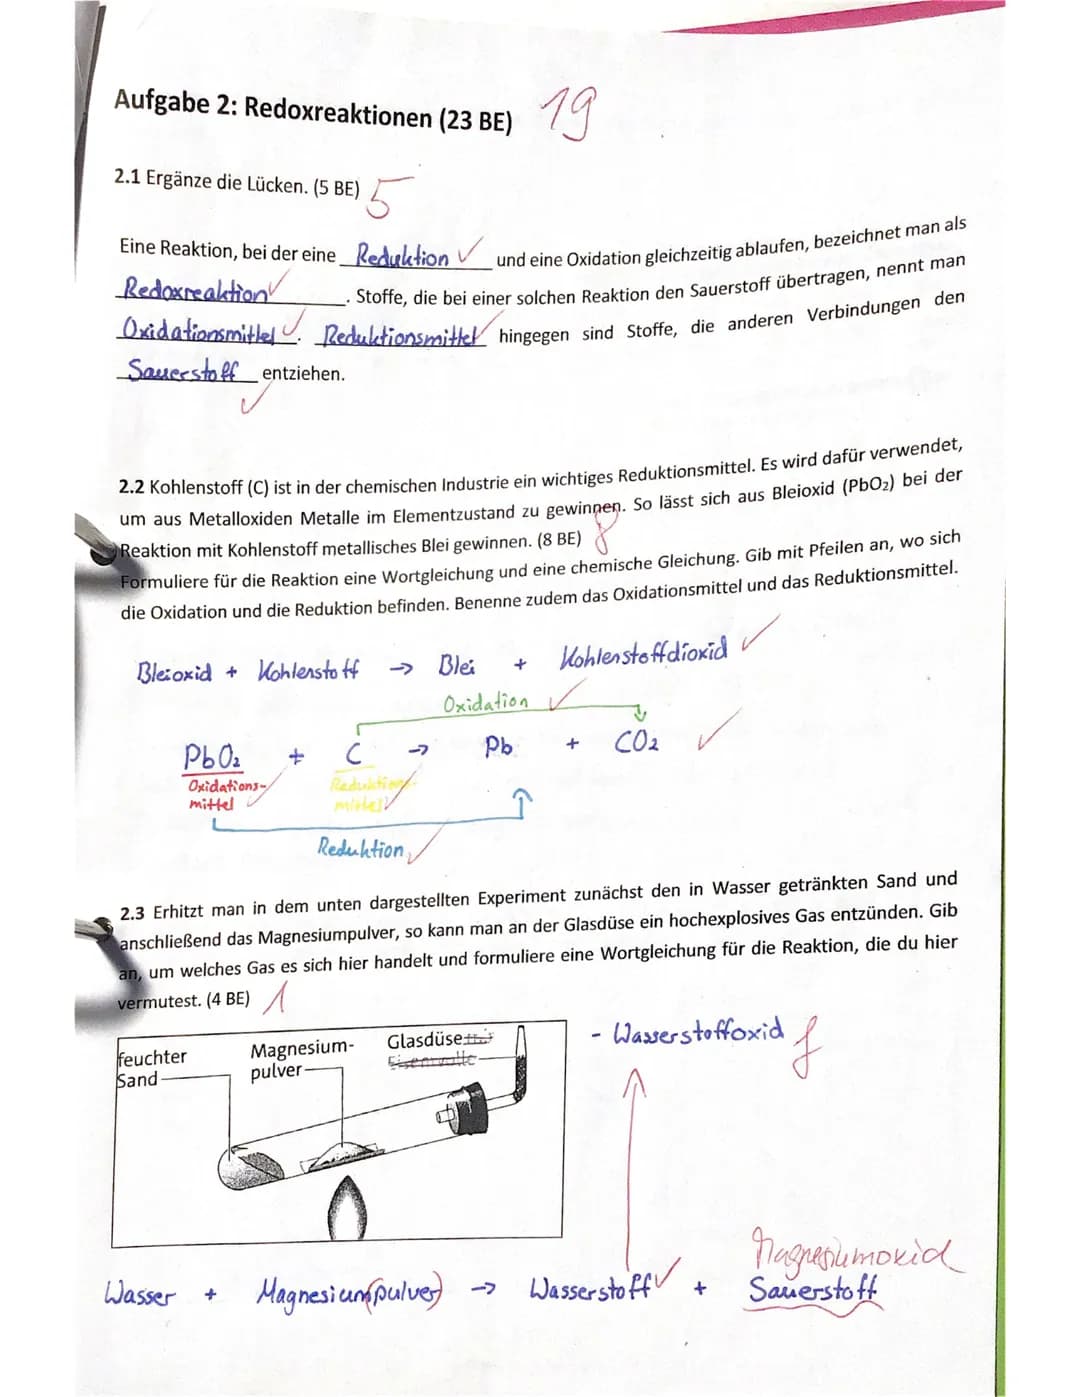 Aufgabe 2: Redoxreaktionen (23 BE) 19
2.1 Ergänze die Lücken. (5 BE) 5
Eine Reaktion, bei der eine Reduktion und eine Oxidation gleichzeitig ablaufen, bezeichnet man als
Redoxreaktion. Stoffe, die bei einer solchen Reaktion den Sauerstoff übertragen, nennt man
Oxidationsmittel. Reduktionsmittel hingegen sind Stoffe, die anderen Verbindungen den
Sauerstoff entziehen.
2.2 Kohlenstoff (C) ist in der chemischen Industrie ein wichtiges Reduktionsmittel. Es wird dafür verwendet,
um aus Metalloxiden Metalle im Elementzustand zu gewinnen. So lässt sich aus Bleioxid (PbO₂) bei der
Reaktion mit Kohlenstoff metallisches Blei gewinnen. (8 BE) 8
Formuliere für die Reaktion eine Wortgleichung und eine chemische Gleichung. Gib mit Pfeilen an, wo sich
die Oxidation und die Reduktion befinden. Benenne zudem das Oxidationsmittel und das Reduktionsmittel.
Bleioxid + Kohlenstoff → Blei + Kohlenstoffdioxid
Oxidation
PbO₂ + C → Pb + CO₂
Oxidations-
mittel
Reduktions-
mittel
Reduktion
2.3 Erhitzt man in dem unten dargestellten Experiment zunächst den in Wasser getränkten Sand und
anschließend das Magnesiumpulver, so kann man an der Glasdüse ein hochexplosives Gas entzünden. Gib
an, um welches Gas es sich hier handelt und formuliere eine Wortgleichung für die Reaktion, die du hier
vermutest. (4 BE) 1
feuchter
Sand
Magnesium-
pulver
Glasdüse
Eisenwolle
- Wasserstoffoxid f
Magnesiumoxid
Wasser + Magnesium(pulver) → Wasserstoff + Sauerstoff